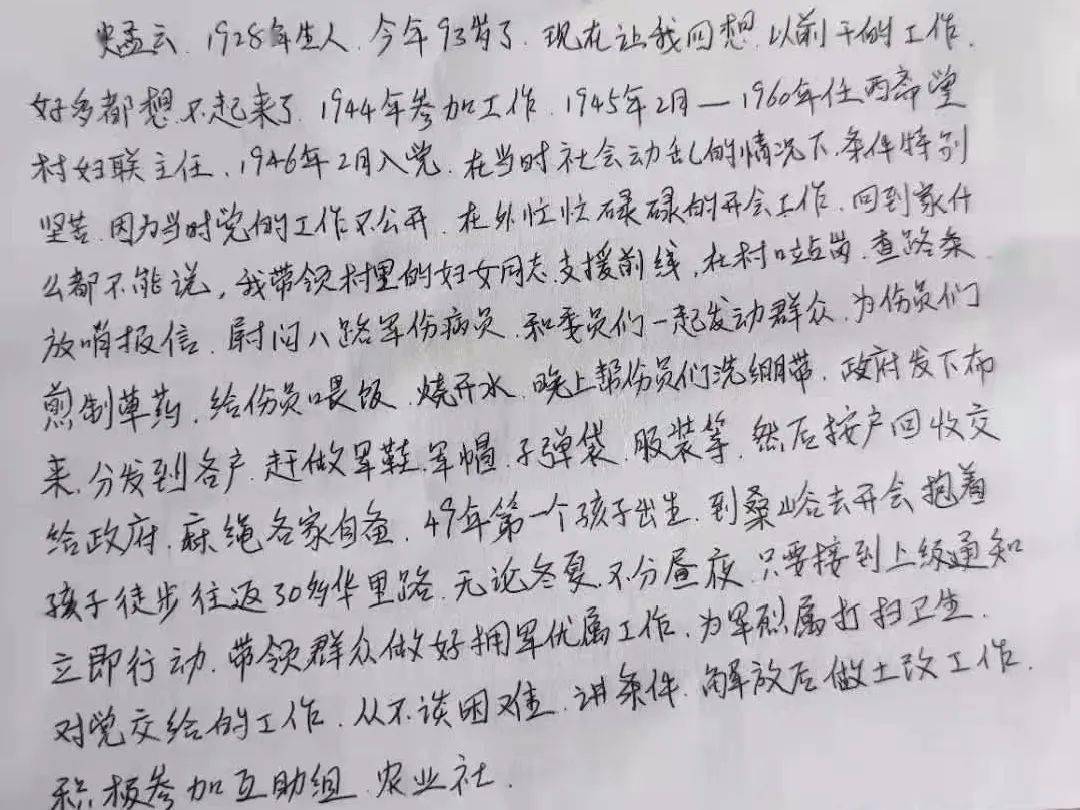 史孟云、1928年生人、今年93岁了、现在让我回想、以前干的工作、
好多都想不起来了、1944年参加工作、1945年2月—1960年任西斋堂
村妇联主任、1946年2月入党、在当时社会动乱的情况下、条件特别
坚苦、因为当时党的工作不公开、在外忙忙碌碌的开会工作、回到家什
么都不能说，我带领村里的妇女同志支援前线，在村口站岗、查路条、
放哨报信、尉问八路军伤病员、和委员们一起发动群众、为伤员们
煎制草药、给伤员喂饭、烧开水、晚上帮伤员们洗绷带、政府发下布
来、分发到各户、赶做军鞋、军帽、子弹袋、服装等、然后按户回收交
给政府、麻绳各家自备、49年第一个孩子出生、到桑峪去开会抱着
孩子徒步往返30多华里路、无论冬夏、不分昼夜、只要接到上级通知
立即行动、带领群众做好拥军优属工作、为军烈属打扫卫生、
对党交给的工作、从不谈困难、讲条件、解放后做土改工作、
积极参加互助组、农业社、